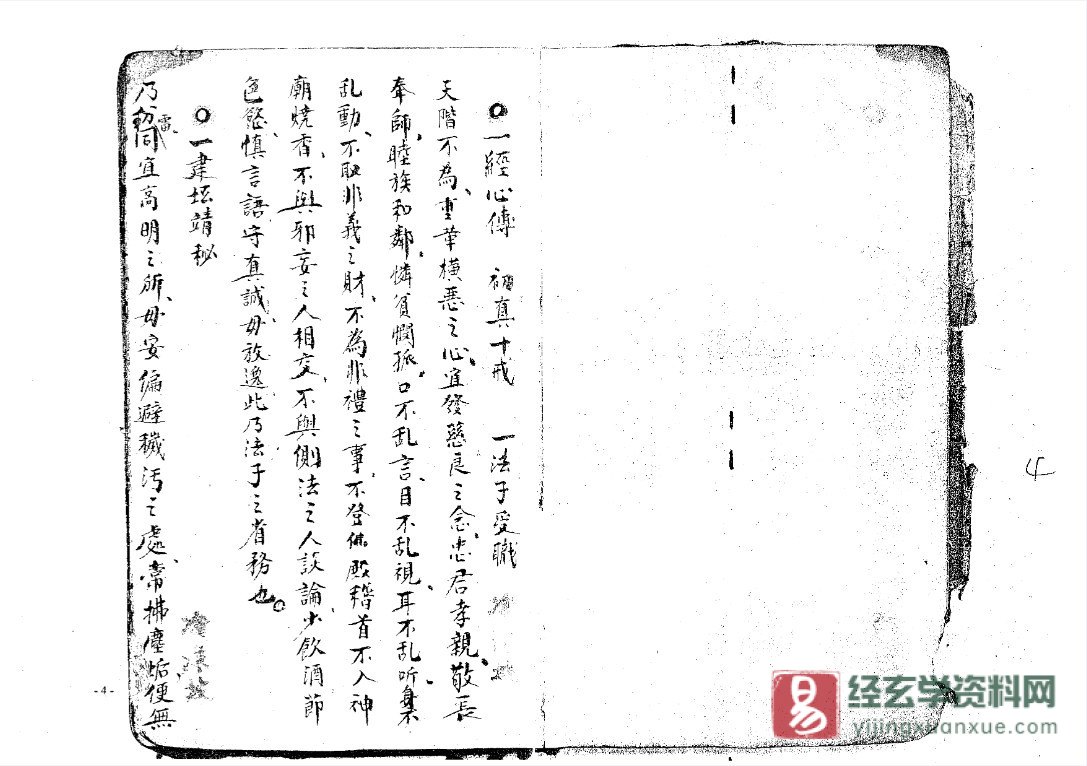 一經心傳 初真十戒 一法子受職
天階不為、重華橫惡之心、宜發慈良之念、忠君孝親、敬長
奉師、睦族和鄰、憐貧憫孤、口不乱言、目不乱視、耳不乱听、
乱動、不取非義之財、不為非禮之事、不登佛殿稽首不入神
廟燒香、不與邪妄之人相交、不與側法之人談論、少飲酒節
色慾、慎言語、守真誠、毋放逸此乃法子之省務也。
一建坛靖秘
乃雷同宜高明之所、毋安偏避穢污之處、常拂塵垢便無
-4-
4
易
经玄学资料网
yijingxuanxue.com